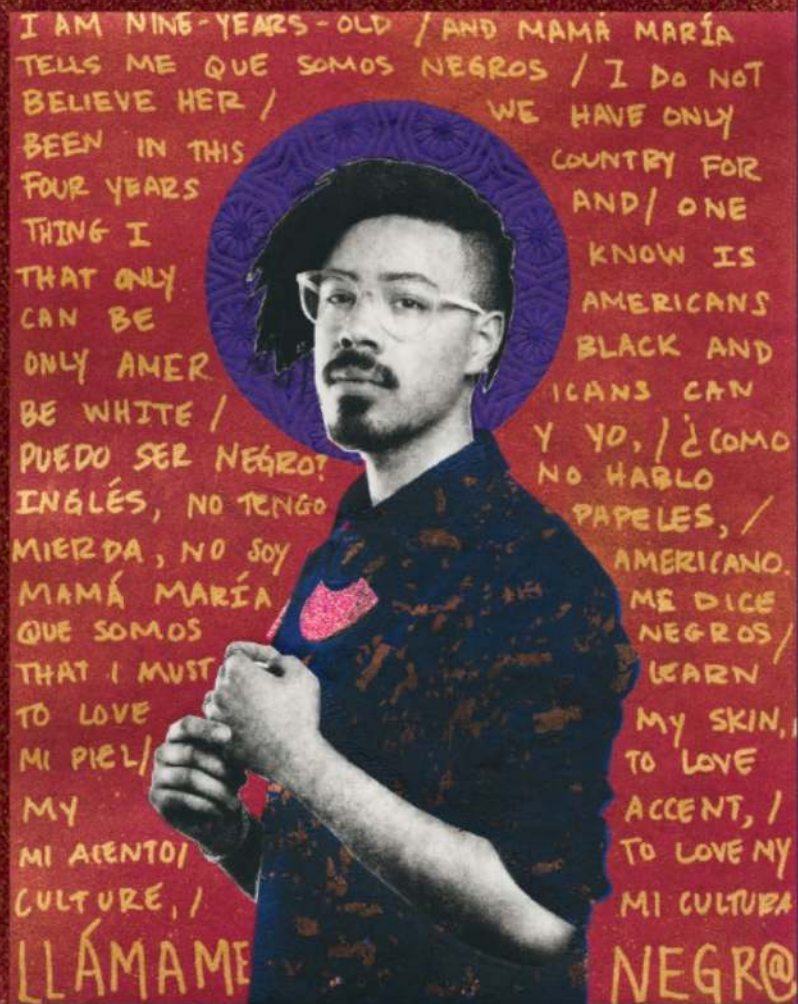 I AM NINE-YEARS-OLD / AND MAMÁ MARÍA
TELLS ME QUE SOMOS NEGROS / I DO NOT
BELIEVE HER / WE HAVE ONLY
BEEN IN THIS COUNTRY FOR
FOUR YEARS AND / ONE
THING I KNOW IS
THAT ONLY AMERICANS
CAN BE BLACK AND
ONLY AMER ICANS CAN
BE WHITE / Y YO, / ¿COMO
PUEDO SER NEGRO? NO HABLO
INGLÉS, NO TENGO PAPELES, /
MIERDA, NO SOY AMERICANO.
MAMÁ MARÍA ME DICE
QUE SOMOS NEGROS /
THAT I MUST LEARN
TO LOVE MY SKIN, /
MI PIEL / TO LOVE
MY ACCENT, /
MI ACENTO / TO LOVE MY
CULTURE, / MI CULTURA
LLÁMAME NEGR@